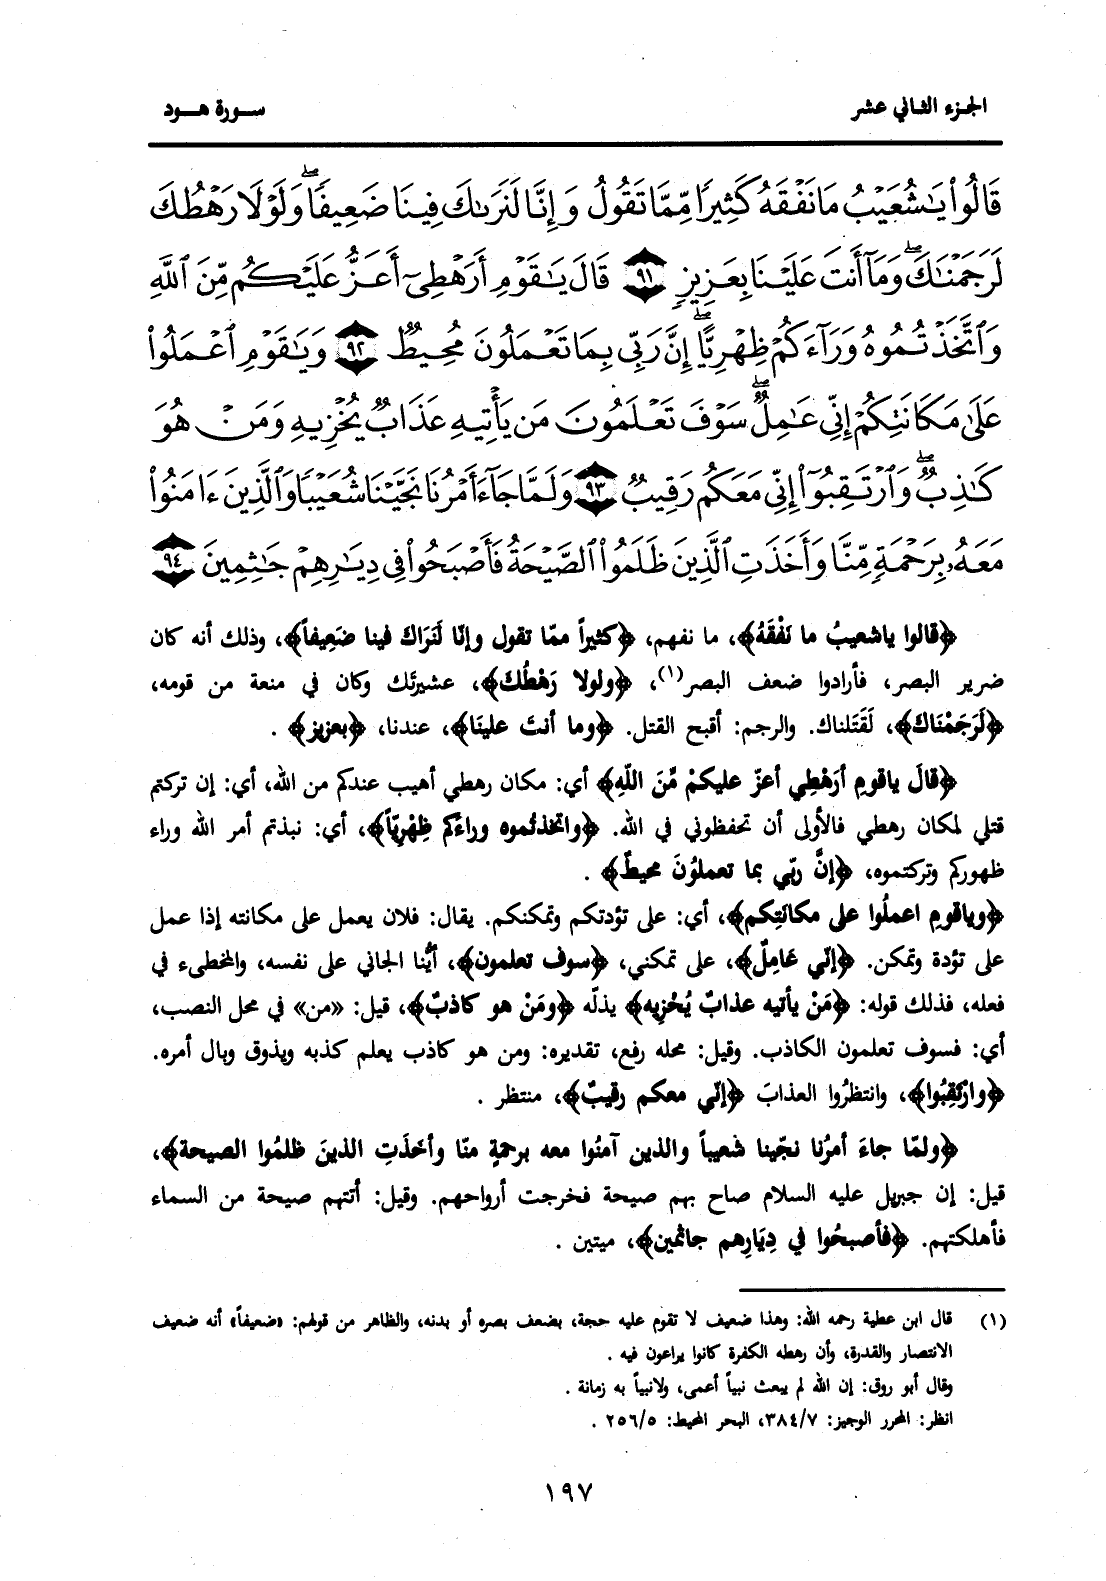 الجزء الثاني عشر
سورة هود
قَالُوا۟ يَـٰشُعَيْبُ مَا نَفْقَهُ كَثِيرًا مِّمَّا تَقُولُ وَإِنَّا لَنَرَىٰكَ فِينَا ضَعِيفًا ۖ وَلَوْلَا رَهْطُكَ
لَرَجَمْنَـٰكَ ۖ وَمَآ أَنتَ عَلَيْنَا بِعَزِيزٍ ٩١ قَالَ يَـٰقَوْمِ أَرَهْطِىٓ أَعَزُّ عَلَيْكُم مِّنَ ٱللَّهِ
وَٱتَّخَذْتُمُوهُ وَرَآءَكُمْ ظِهْرِيًّا ۖ إِنَّ رَبِّى بِمَا تَعْمَلُونَ مُحِيطٌ ٩٢ وَيَـٰقَوْمِ ٱعْمَلُوا۟
عَلَىٰ مَكَانَتِكُمْ إِنِّى عَـٰمِلٌ ۖ سَوْفَ تَعْلَمُونَ مَن يَأْتِيهِ عَذَابٌ يُخْزِيهِ وَمَنْ هُوَ
كَـٰذِبٌ ۖ وَٱرْتَقِبُوٓا۟ إِنِّى مَعَكُمْ رَقِيبٌ ٩٣ وَلَمَّا جَآءَ أَمْرُنَا نَجَّيْنَا شُعَيْبًا وَٱلَّذِينَ ءَامَنُوا۟
مَعَهُۥ بِرَحْمَةٍ مِّنَّا وَأَخَذَتِ ٱلَّذِينَ ظَلَمُوا۟ ٱلصَّيْحَةُ فَأَصْبَحُوا۟ فِى دِيَـٰرِهِمْ جَـٰثِمِينَ ٩٤
﴿قالوا ياشعيبُ ما نَفْقَهُ﴾، ما نفهم، ﴿كثيراً ممّا تقول وإنّا لَنَرَاكَ فينا ضَعِيفاً﴾، وذلك أنه كان
ضرير البصر، فأرادوا ضعف البصر(١)، ﴿ولولا رَهْطُكَ﴾، عشيرتك وكان في منعة من قومه،
﴿لَرَجَمْنَاكَ﴾، لَقَتَلناك. والرجم: أقبح القتل. ﴿وما أنتَ علينَا﴾، عندنا، ﴿بعزيز﴾ .
﴿قالَ ياقومِ أرَهْطِي أعزّ عليكمْ مِّنَ اللّهِ﴾ أي: مكان رهطي أهيب عندكم من الله، أي: إن تركتم
قتلي لمكان رهطي فالأولى أن تحفظوني في الله. ﴿واتخذتُموه وراءَكم ظِهْرِيّاً﴾، أي: نبذتم أمر الله وراء
ظهوركم وتركتموه، ﴿إنَّ ربّي بما تعملوُنَ محيطٌ﴾ .
﴿وياقومِ اعملُوا على مكانَتِكم﴾، أي: على تؤدتكم وتمكنكم. يقال: فلان يعمل على مكانته إذا عمل
على تؤدة وتمكن. ﴿إنّي عَامِلٌ﴾، على تمكني، ﴿سوف تعلمون﴾، أيُّنا الجاني على نفسه، والمخطىء في
فعله، فذلك قوله: ﴿مَنْ يأتيه عذابٌ يُخْزِيه﴾ يذلّه ﴿ومَنْ هو كاذبٌ﴾، قيل: «من» في محل النصب،
أي: فسوف تعلمون الكاذب. وقيل: محله رفع، تقديره: ومن هو كاذب يعلم كذبه ويذوق وبال أمره.
﴿وارْتَقِبُوا﴾، وانتظرُوا العذابَ ﴿إنّي معكم رقيبٌ﴾، منتظر .
﴿ولمّا جاءَ أمرُنا نجّينا شعيباً والذين آمنُوا معه برحمةٍ منّا وأخذَتِ الذينَ ظلمُوا الصيحة﴾،
قيل: إن جبريل عليه السلام صاح بهم صيحة فخرجت أرواحهم. وقيل: أتتهم صيحة من السماء
فأهلكتهم. ﴿فأصبحُوا في دِيَارِهم جاثمين﴾، ميتين .
(١) قال ابن عطية رحمه الله: وهذا ضعيف لا تقوم عليه حجة، بضعف بصره أو بدنه، والظاهر من قولهم: «ضعيفاً» أنه ضعيف
الانتصار والقدرة، وأن رهطه الكفرة كانوا يراعون فيه .
وقال أبو روق: إن الله لم يبعث نبياً أعمى، ولانبياً به زمانة .
انظر: المحرر الوجيز: ٣٨٤/٧، البحر المحيط: ٢٥٦/٥ .
١٩٧